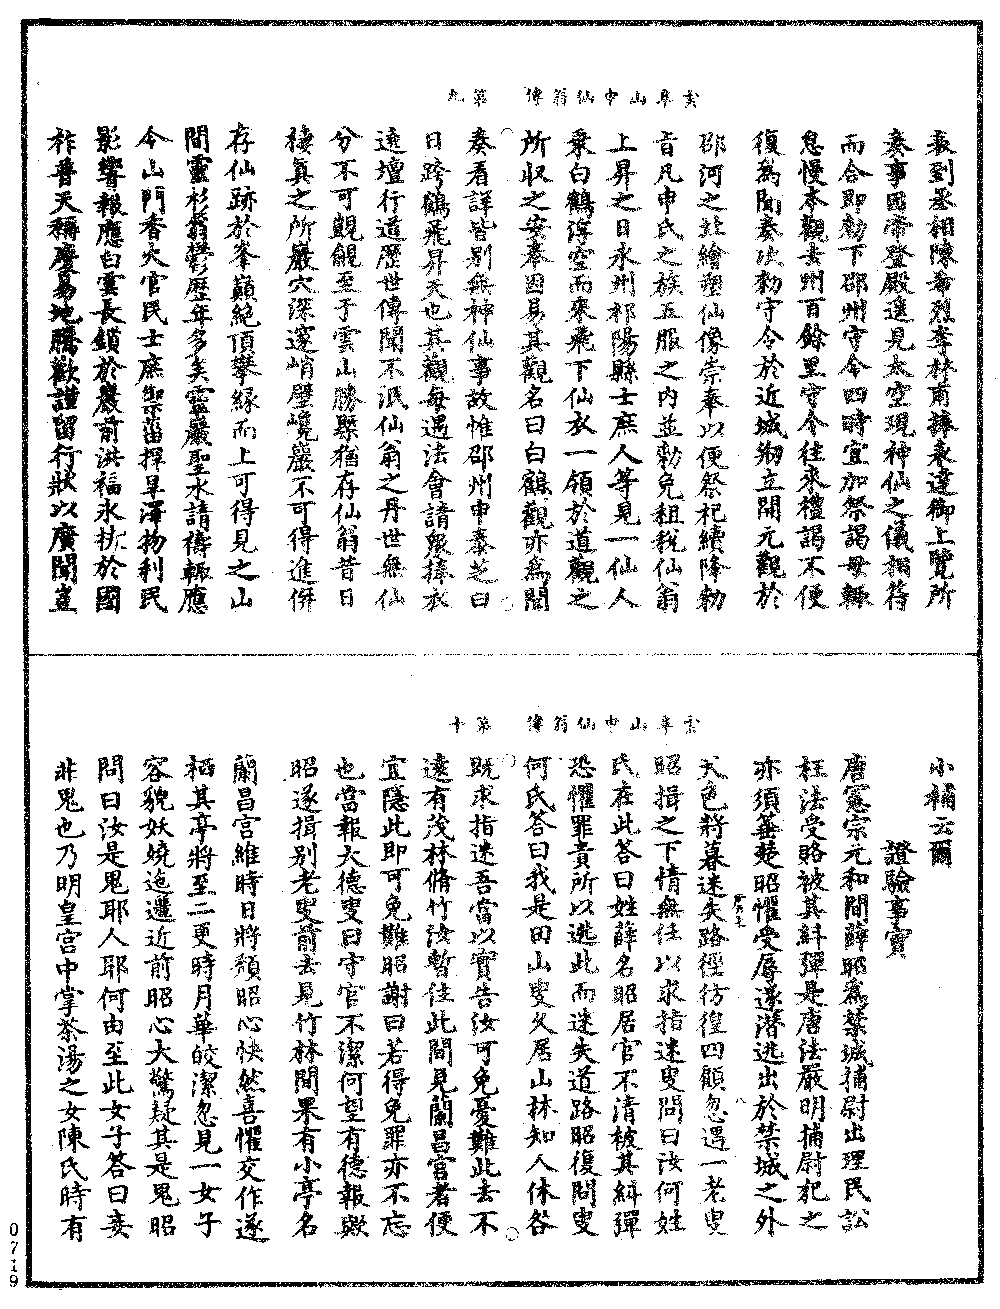 雲阜山申仙翁傳　第九
表到丞相陳希烈李林甫捧表達御上覽所
奏事國常登殿遙見太空現神仙之儀相符
而合即勑下邵州守令四時宜加祭謁毋輒
怠慢本觀去州百餘里守令往來禮謁不便
復爲聞奏次勑守令於近城剏立開元觀於
邵河之畔繪塑仙像崇奉以便祭祀續降勑
旨凡申氏之族五服之内並勑免租稅仙翁
上昇之日永州祁陽縣士庶人等見一仙人
乘白鶴浮空而來飛下仙衣一領於道觀之
所收之安奉因易其觀名曰白鶴觀亦爲聞
奏看詳皆别無神仙事故惟邵州申泰芝曰
日跨鶴飛昇天也其觀每遇法會請衆捧衣
遶壇行道歷世傳聞不泯仙翁之丹世無仙
分不可覬覦至于雲山勝槩猶存仙翁昔日
棲真之所巖穴深邃峭壁巉巖不可得進併
存仙跡於峯巔絶頂攀緣而上可得見之山
間靈杉蓊鬱歷年多矣靈巖聖水請禱輒應
今山門香火官民士庶禦菑捍旱澤物利民
影響報應白雲長鎖於巖前洪福永扶於國
祚普天稱慶易地騰歡謹留行狀以廣聞豈
雲阜山申仙翁傳　第十
小補云爾
證驗事實
唐憲宗元和間薛昭爲禁城捕尉出理民訟
枉法受賂被其糾彈是唐法嚴明捕尉犯之
亦須箠楚昭懼受辱遂潛逃出於禁城之外
天色將暮迷失路徑彷徨四顧忽遇一老叟
昭揖之下情無任以求指迷叟問曰汝何姓
氏在此答曰姓薛名昭居官不清被其糾彈
恐懼罪責所以逃此而迷失道路昭復問叟
何氏答曰我是田山叟久居山林知人休咎
既求指迷吾當以實告汝可免憂難此去不
遠有茂林脩竹汝暫住此間見蘭昌宮者便
宜隱此即可免難昭謝曰若得免罪亦不忘
也當報大德叟曰守官不潔何望有德報歟
昭遂揖别老叟前去見竹林間果有小亭名
蘭昌宮維時日將頹昭心怏然喜懼交作遂
栖其亭將至二更時月華皎潔忽見一女子
容貌妖嬈迤邐近前昭心大驚疑其是鬼昭
問曰汝是鬼耶人耶何由至此女子答曰妾
非鬼也乃明皇宮中掌茶湯之女陳氏時有
0719